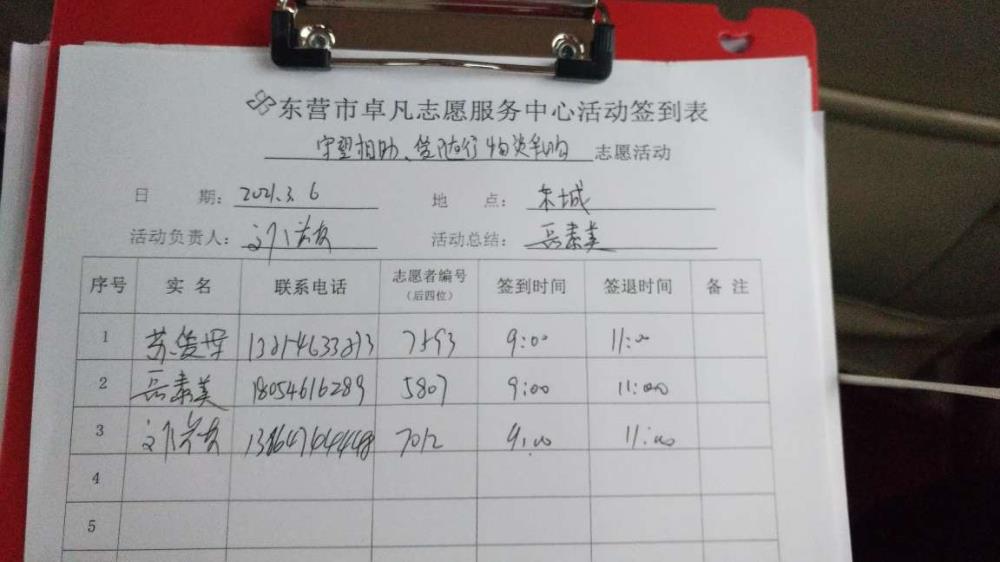 东营市卓凡志愿服务中心活动签到表
守望相助、 志愿活动
日 期: 2021.3.6 地 点: 东城
活动负责人: 活动总结: 岳素美
序号 实名 联系电话 志愿者编号(后四位) 签到时间 签退时间 备注
1 7593 9:00 11:00
2 岳素美 18054616289 5807 9:00 11:00
3 7012 9:00 11:00
4
5